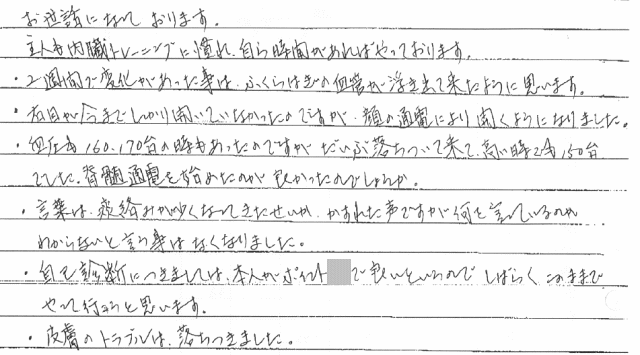 お世話になっております。
主人も内臓トレーニングに慣れ、自ら時間があればやっております。
・2週間で変化があった事は、ふくらはぎの血管が浮き出て来たように思います。
・右目が今までしっかり開いていなかったのですが、顔の通電により開くようになりました。
・血圧も160、170台の時もあったのですが だいぶ落ちついて来て、高い時でも150台
でした。脊髄通電を始めたのが良かったのでしょうか。
・言葉は、痰絡みが少くなってきたせいか、かすれた声ですが何を言っているのか
わからないと言う事はなくなりました。
・自己診断につきましては、本人がポイント で良いというので しばらく このままで
やって行こうと思います。
・皮膚のトラブルは、落ちつきました。